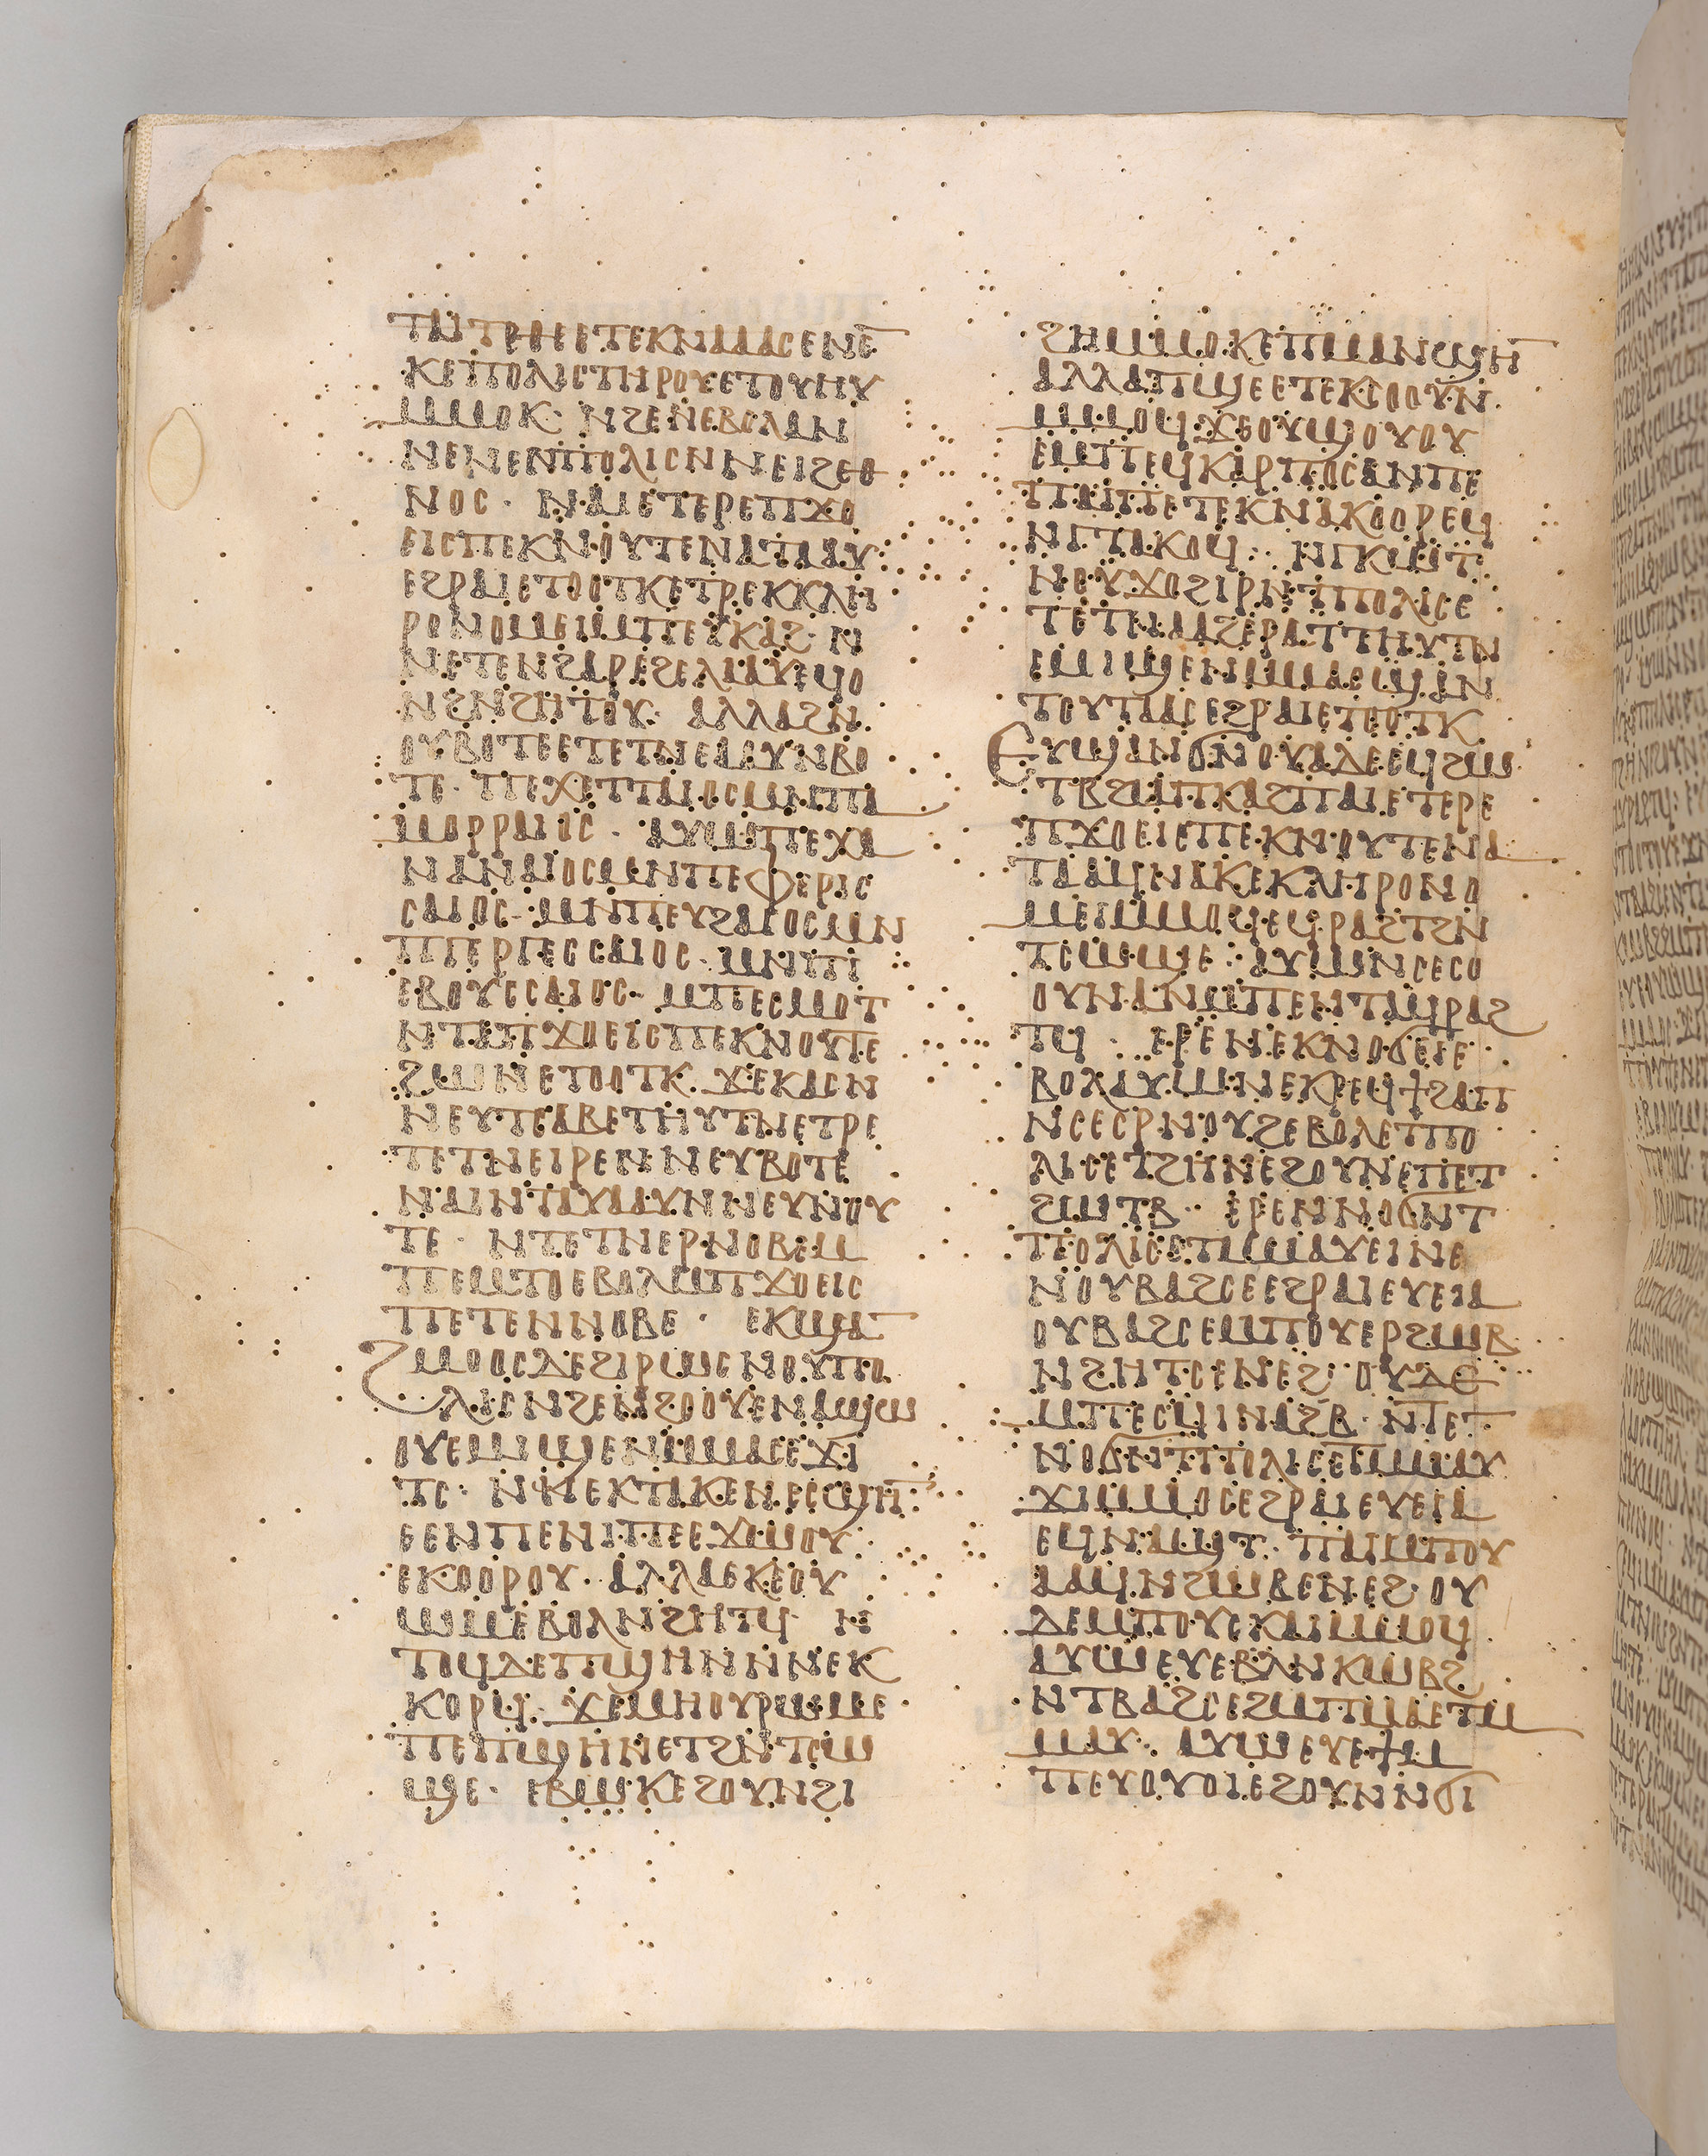 ⲧⲁⲓⲧⲉⲑⲉⲉⲧⲉⲕⲛⲁⲁⲁⲥⲉⲛⲉ
ⲕⲉⲡⲟⲗⲓⲥⲧⲏⲣⲟⲩⲉⲧⲟⲩⲏⲩ
ⲙⲙⲟⲕ· ⲛϩⲉⲛⲉⲃⲟⲗⲁⲛ
ⲛⲉⲛⲉⲛⲡⲟⲗⲓⲥⲛⲛⲉⲓϩⲉⲑ
ⲛⲟⲥ· ⲛⲁⲓⲉⲧⲉⲣⲉⲡϫⲟ
ⲉⲓⲥⲡⲉⲕⲛⲟⲩⲧⲉⲛⲁⲧⲁⲁⲩ
ⲉϩⲣⲁⲓⲉⲧⲟⲟⲧⲕⲉⲧⲣⲉⲕⲕⲗⲏ
ⲣⲟⲛⲟⲙⲉⲓⲙⲡⲉⲩⲕⲁϩ· ⲛ
ⲛⲉⲧⲉⲛϩⲁⲣⲉϩⲉⲗⲁⲁⲩⲉϥⲟ
ⲛϩⲛϩⲏⲧⲟⲩ· ⲁⲗⲗⲁϩⲛ
ⲟⲩⲃⲟⲧⲉⲉⲧⲉⲧⲛⲉⲁⲁⲩⲛⲃⲟ
ⲧⲉ· ⲡⲉⲭⲉⲧⲧⲁⲓⲟⲥⲙⲛⲡⲁ
ⲙⲟⲣⲣⲁⲓⲟⲥ· ⲁⲩⲱⲡⲉⲭⲁ
ⲛⲁⲛⲁⲓⲟⲥⲙⲛⲡⲉⲫⲉⲣⲓⲥ
ⲥⲁⲓⲟⲥ· ⲙⲛⲡⲉⲩϩⲁⲓⲟⲥⲙⲛ
ⲡⲉⲣⲅⲉⲥⲥⲁⲓⲟⲥ· ⲙⲛⲡⲓ
ⲉⲃⲟⲩⲥⲥⲁⲓⲟⲥ· ⲙⲡⲉⲥⲙⲟⲧ
ⲛⲧⲁⲡϫⲟⲉⲓⲥⲡⲉⲕⲛⲟⲩⲧⲉ
ϩⲱⲛⲉⲧⲟⲟⲧⲕ ϫⲉⲕⲁⲥⲛ
ⲛⲉⲩⲧⲥⲁⲃⲉⲧⲏⲩⲧⲛⲉⲧⲣⲉ
ⲧⲉⲧⲛⲉⲓⲣⲉⲛⲛⲉⲩⲃⲟⲧⲉ
ⲛⲁⲓⲛⲧⲁⲩⲁⲁⲩⲛⲛⲉⲩⲛⲟⲩ
ⲧⲉ· ⲛⲧⲉⲧⲛⲉⲣⲛⲟⲃⲉⲙ
ⲡⲉⲙⲧⲟⲉⲃⲟⲗⲙⲡϫⲟⲉⲓⲥ
ⲡⲉⲧⲉⲛⲛⲟⲩⲧⲉ· ⲉⲕϣⲁ
ϩⲙⲟⲟⲥⲇⲉϩⲓⲣⲱⲥⲛⲟⲩⲡⲟ
ⲗⲓⲥⲛϩⲉⲛϩⲟⲟⲩⲉⲛⲁϣⲱ
ⲟⲩⲉⲙⲓϣⲉⲛⲙⲙⲁⲥⲉϫⲓ
ⲧⲥ· ⲛⲛⲉⲕⲧⲁⲕⲉⲛⲉⲥϣⲏ
ⲉⲉⲛⲡⲉⲛⲓⲡⲉⲉϫⲱⲟⲩ
ⲉⲕⲟⲟⲣⲟⲩ· ⲁⲗⲗⲁⲉⲕⲉⲟⲩ
ⲱⲙⲉⲃⲟⲗⲛϩⲏⲧϥ· ⲛ
ⲧⲟϥⲇⲉⲡϣⲏⲛⲛⲛⲉⲕ
ⲕⲟⲣϥ· ϫⲉⲙⲏⲟⲩⲣⲱⲙⲉ
ⲡⲉⲡϣⲏⲛⲉⲧϩⲛⲧⲥⲱ
ϣⲉ· ⲉⲃⲱⲕⲉϩⲟⲩⲛϩⲓ
ϩⲏⲙⲙⲟⲕⲉⲡⲙⲁⲛϣⲏ
ⲁⲗⲗⲁⲡϣⲉⲉⲧⲉⲕⲥⲟⲟⲩⲛ
ⲙⲙⲟϥ ϫⲉⲟⲩϣⲟⲩⲟⲩ
ⲉⲙⲡⲉϥⲕⲁⲣⲡⲟⲥⲁⲛⲡⲉ
ⲡⲁⲓⲡⲉⲧⲉⲕⲛⲁⲕⲟⲟⲣⲉϥ
ⲛⲅⲧⲁⲕⲟϥ· ⲛⲅⲕⲱⲧ
ⲛⲟⲩϫⲟϩⲓⲣⲛⲧⲡⲟⲗⲓⲥⲉ
ⲧⲉⲧⲛⲁⲁϩⲉⲣⲁⲧⲧⲏⲩⲧⲛ
ⲉⲙⲓϣⲉⲛⲙⲙⲁⲥϣⲁⲛ
ⲧⲟⲩⲧⲁⲁⲥⲉϩⲣⲁⲓⲉⲧⲟⲟⲧⲕ
ⲉⲩϣⲁⲛϭⲛⲟⲩⲁⲇⲉⲉϥϩⲱ
ⲧⲃϩⲙⲡⲕⲁϩⲡⲁⲓⲉⲧⲉⲣⲉ
ⲡϫⲟⲉⲓⲥⲡⲉⲕⲛⲟⲩⲧⲉⲛⲁ
ⲧⲁⲁϥⲛⲁⲕⲉⲕⲗⲏⲣⲟⲛⲟ
ⲙⲉⲓⲙⲙⲟϥⲉϥⲣⲁϩⲧϩⲛ
ⲧⲥⲱϣⲉ· ⲁⲩⲱⲛⲥⲉⲥⲟ
ⲟⲩⲛⲁⲛⲙⲡⲉⲛⲧⲁϥⲣⲁϩ
ⲧϥ· ⲉⲣⲉⲛⲉⲕⲛⲟϭⲉⲓⲉ
ⲃⲟⲗⲁⲩⲱⲛⲉⲕⲣⲉϥϯϩⲁⲡ
ⲛⲥⲉⲥⲣⲛⲟⲩϩⲉⲃⲟⲗⲉⲡⲡⲟ
ⲗⲓⲥⲉⲧϩⲏⲛⲉϩⲟⲩⲛⲉⲡⲉⲧ
ϩⲱⲧⲃ· ⲉⲣⲉⲛⲛⲟϭⲛⲧ
ⲡⲟⲗⲓⲥⲉⲧⲙⲙⲁⲩⲉⲓⲛⲉ
ⲛⲟⲩⲃⲁϩⲥⲉⲉϩⲣⲁⲓⲉⲩⲉⲓⲁ
ⲟⲩⲃⲁϩⲥⲉⲙⲡⲟⲩⲉⲣϩⲱⲃ
ⲛϩⲏⲧⲥⲉⲛⲉϩ· ⲟⲩⲇⲉ
ⲙⲡⲉⲥϥⲓⲛⲁϩⲃ· ⲛⲧⲉⲧ
ⲛⲟϭⲛⲧⲡⲟⲗⲓⲥⲉⲧⲙⲙⲁⲩ
ϫⲓⲙⲙⲟⲥⲉϩⲣⲁⲓⲉⲩⲉⲓⲁ
ⲉϥⲛⲁϣⲧ· ⲡⲁⲓⲙⲡⲟⲩ
ⲁⲁϥⲛϩⲱⲃⲉⲛⲉϩ· ⲟⲩ
ⲇⲉⲙⲡⲟⲩⲥⲕⲁⲓⲙⲙⲟϥ
ⲁⲩⲱⲉⲩⲉⲃⲗⲛⲕⲱⲃϩ
ⲛⲧⲃⲁϩⲥⲉϩⲙⲡⲙⲁⲉⲧⲙ
ⲙⲁⲩ· ⲁⲩⲱⲉⲩⲉϯⲙ
ⲡⲉⲩⲟⲩⲟⲓⲉϩⲟⲩⲛⲛϭⲓ